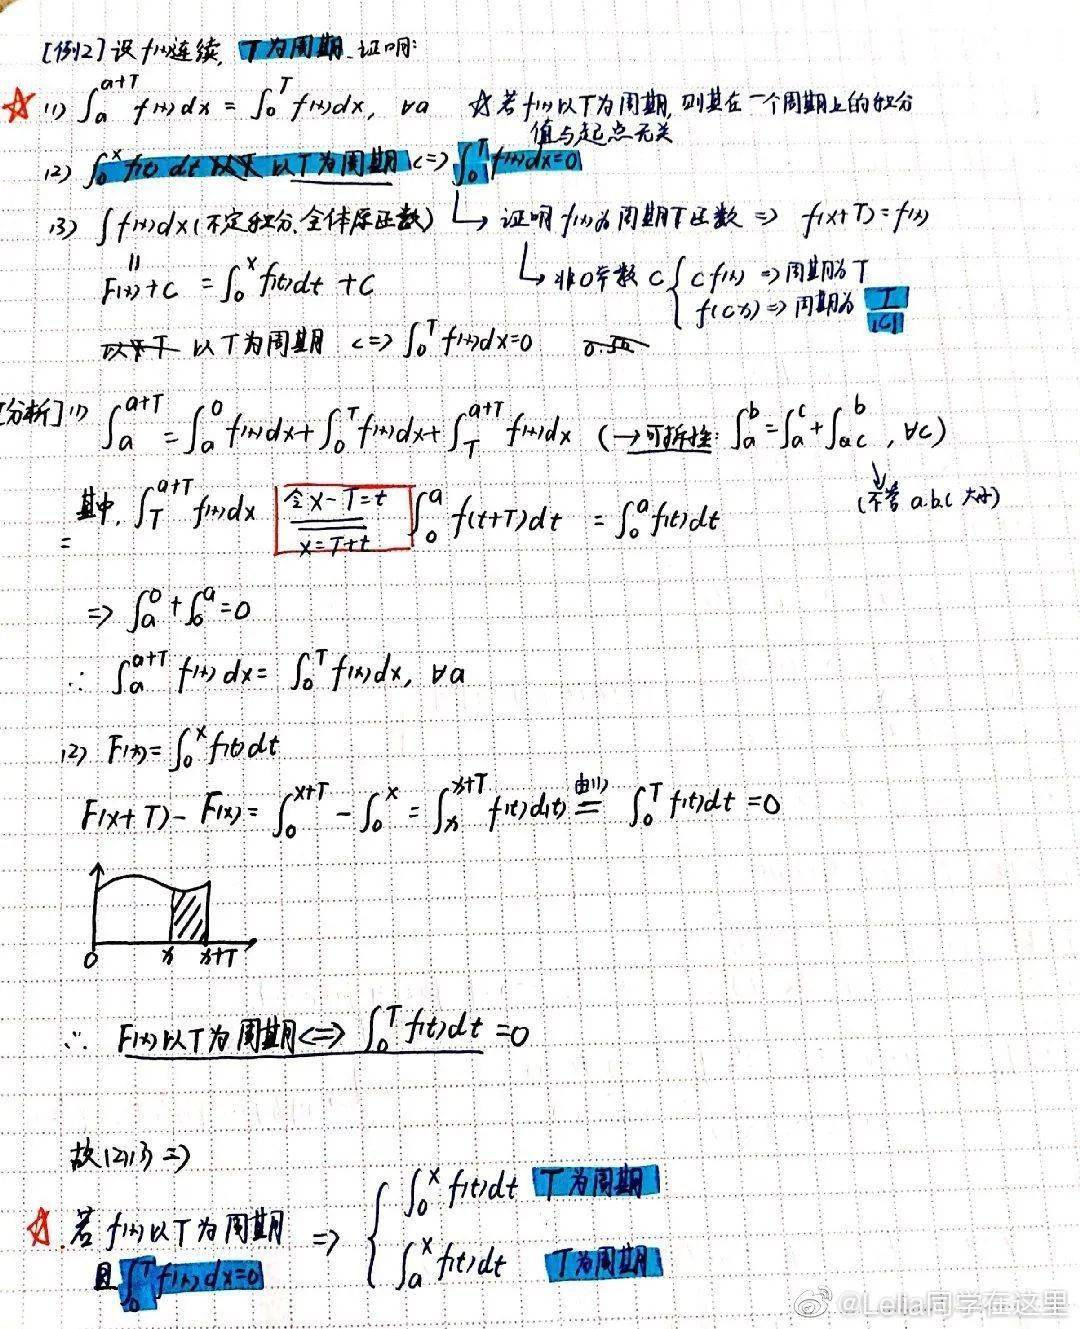 [例2] 设 f(x)连续, T为周期. 证明:
(1) ∫_a^{a+T} f(x)dx = ∫_0^T f(x)dx, ∀a ☆若f(x)以T为周期,则其在一个周期上的积分
值与起点无关
(2) ∫_0^x f(t)dt 以T为周期 <=> ∫_0^T f(x)dx=0
(3) ∫f(x)dx (不定积分、全体原函数) ↳ 证明 f(x)为周期T函数 => f(x+T)=f(x)
|| ↳ 非0常数 C { C f(x) => 周期为T
F(x)+C = ∫_0^x f(t)dt +C f(Cx) => 周期为 T/|C|
以T为周期 <=> ∫_0^T f(x)dx=0
[分析] (1) ∫_a^{a+T} = ∫_a^0 f(x)dx + ∫_0^T f(x)dx + ∫_T^{a+T} f(x)dx (→可拆性: ∫_a^b = ∫_a^c + ∫_c^b, ∀c)
(不管 a.b.c 大小)
其中, ∫_T^{a+T} f(x)dx 令x-T=t ∫_0^a f(t+T)dt = ∫_0^a f(t)dt
= x=T+t
=> ∫_a^0 + ∫_0^a =0
∴ ∫_a^{a+T} f(x)dx = ∫_0^T f(x)dx, ∀a
(2) F(x)=∫_0^x f(t)dt
F(x+T) - F(x) = ∫_0^{x+T} - ∫_0^x = ∫_x^{x+T} f(t)d(t) 由(1) = ∫_0^T f(t)dt =0
0 x x+T
∴ F(x)以T为周期 <=> ∫_0^T f(t)dt =0
故(2)(3) =>
☆. 若 f(x)以T为周期 => { ∫_0^x f(t)dt T为周期
且 ∫_0^T f(x)dx=0 ∫_a^x f(t)dt T为周期
@Lelia同学在这里